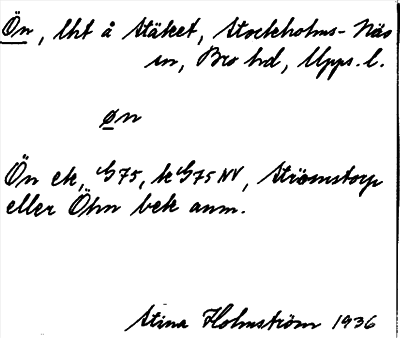 Ön, lht å Stäket, Stockholms-Näs
sn, Bro hd, Upps. l.
øn
Ön ek, G75, k G75 NV, Strömstorp
eller Öhn bek anm.
Stina Holmström 1936